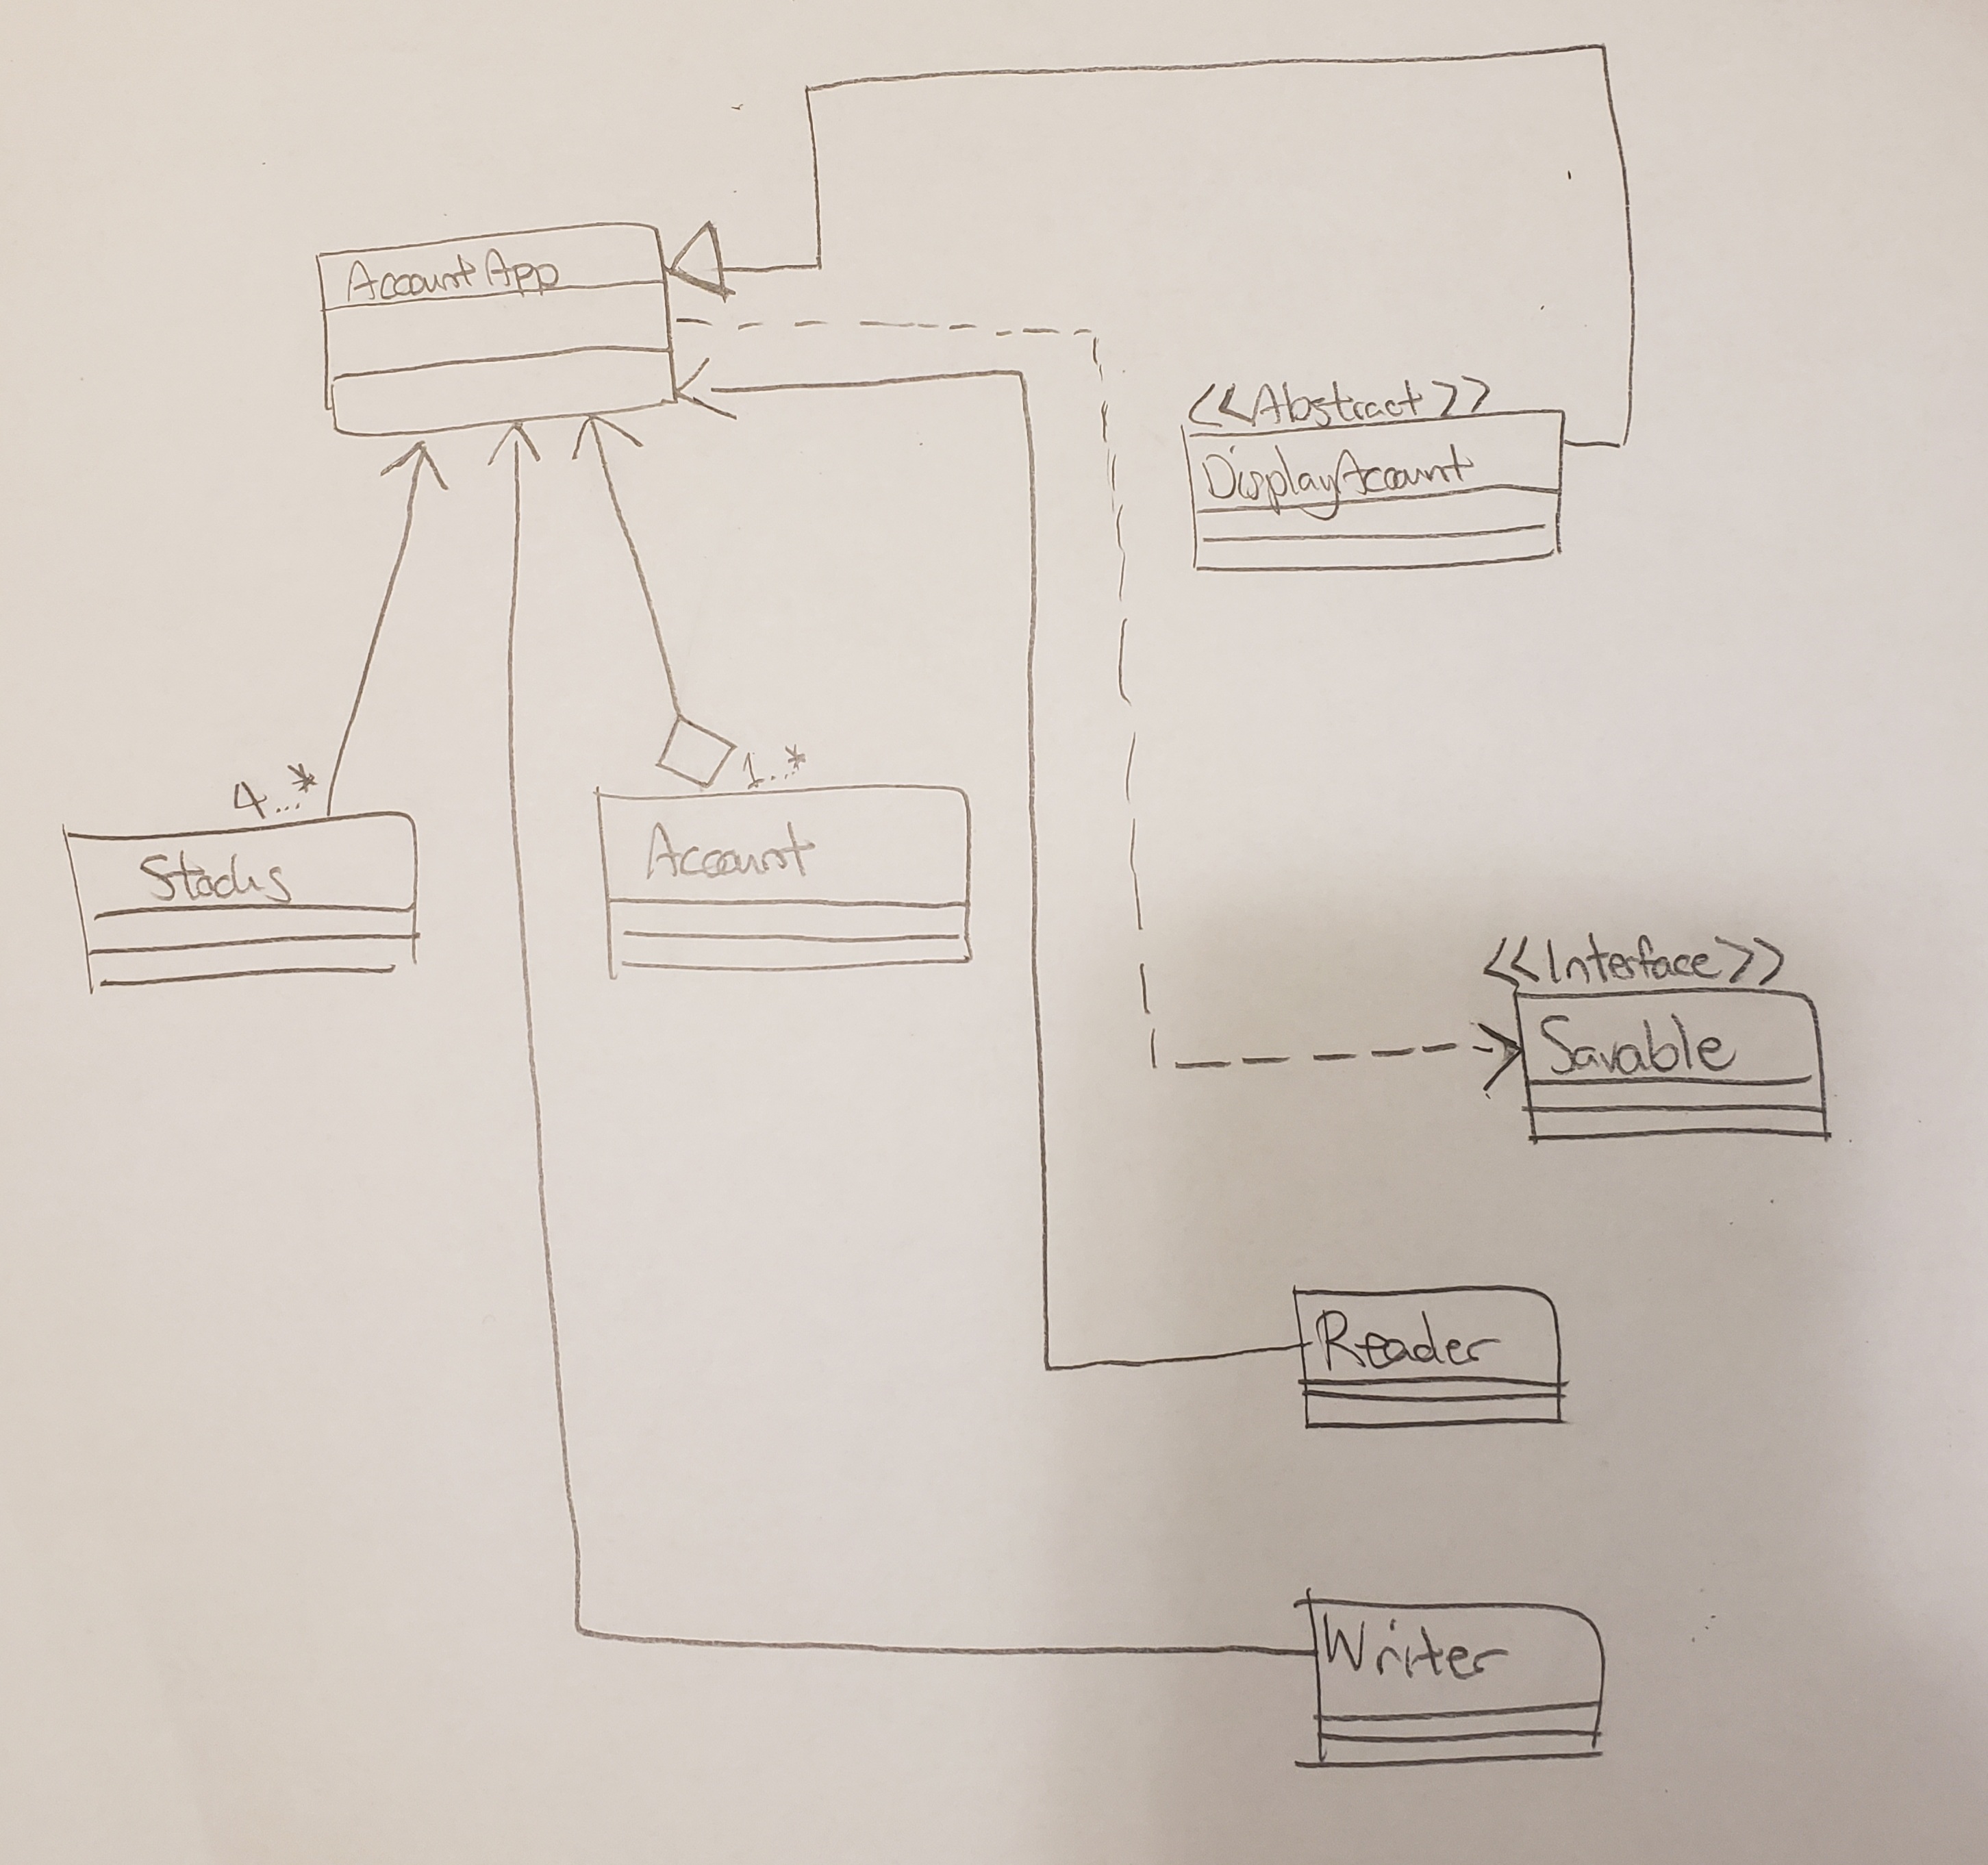 AccountApp
<<Abstract>>
DisplayAccount
4...*
1...*
Stocks
Account
<<Interface>>
Savable
Reader
Writer